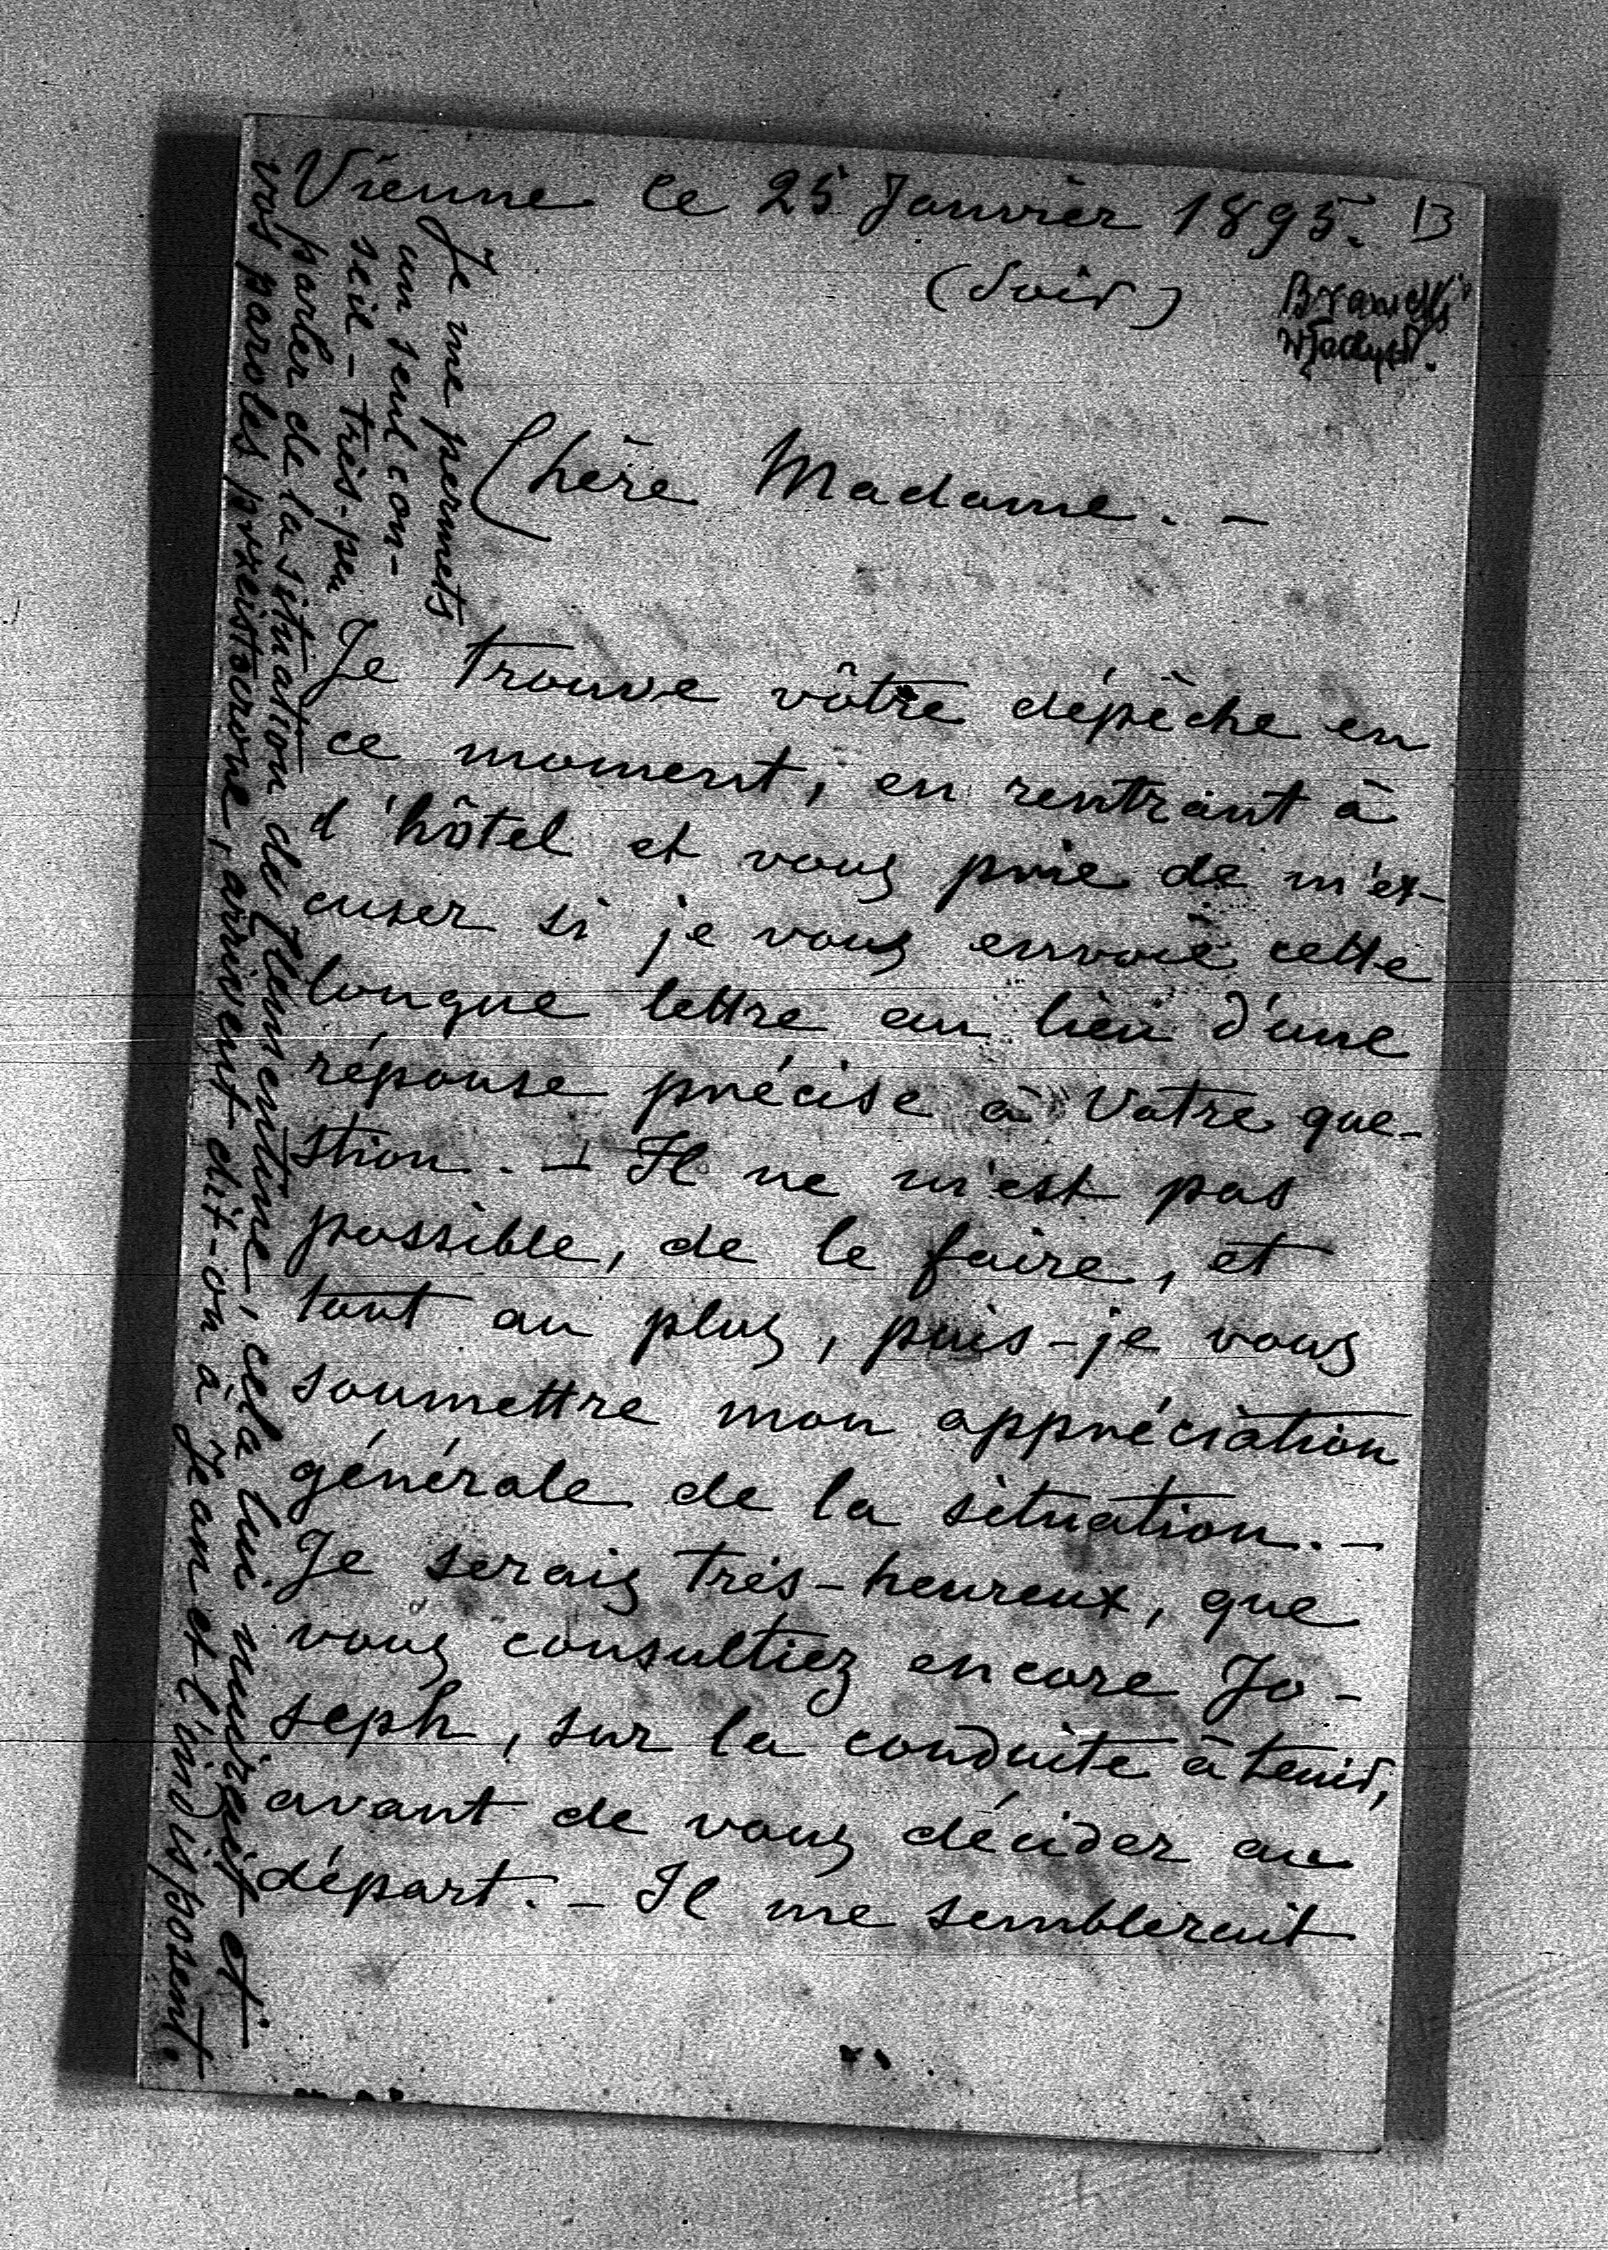 Vienne ce 25 Janvier 1895. 13
(Soir)
Chère Madame. -
Je trouve vôtre dépêche en
ce moment, en rentrant à
l'hôtel et vous prie de m'ex-
cuser si je vous envoie cette
longue lettre au lieu d'une
réponse précise à Votre que-
stion. - Il ne m'est pas
possible, de le faire, et
tout au plus, puis-je vous
soumettre mon appréciation
générale de la situation. -
Je serais très-heureux, que
vous consultiez encore Jo-
seph, sur la conduite à tenir,
avant de vous décider au
départ. - Il me semblerait
Je me permets
un seul con-
seil - très-peu
parler de la situation de Clémentine, cela lui nuirait et
vos paroles arrivent dit-on à Jean et l'indisposent.